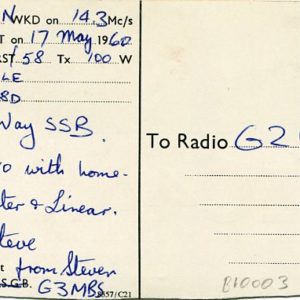 N WKD on 14.3 Mc/s
T on 17 May 1960
RST 58 Tx 100 W
LE
8D
Way SSB.
o with home-
ter & Linear.
teve
t from Steven
S.G.B. G3MBS
5557/C21
To Radio G2
E10003